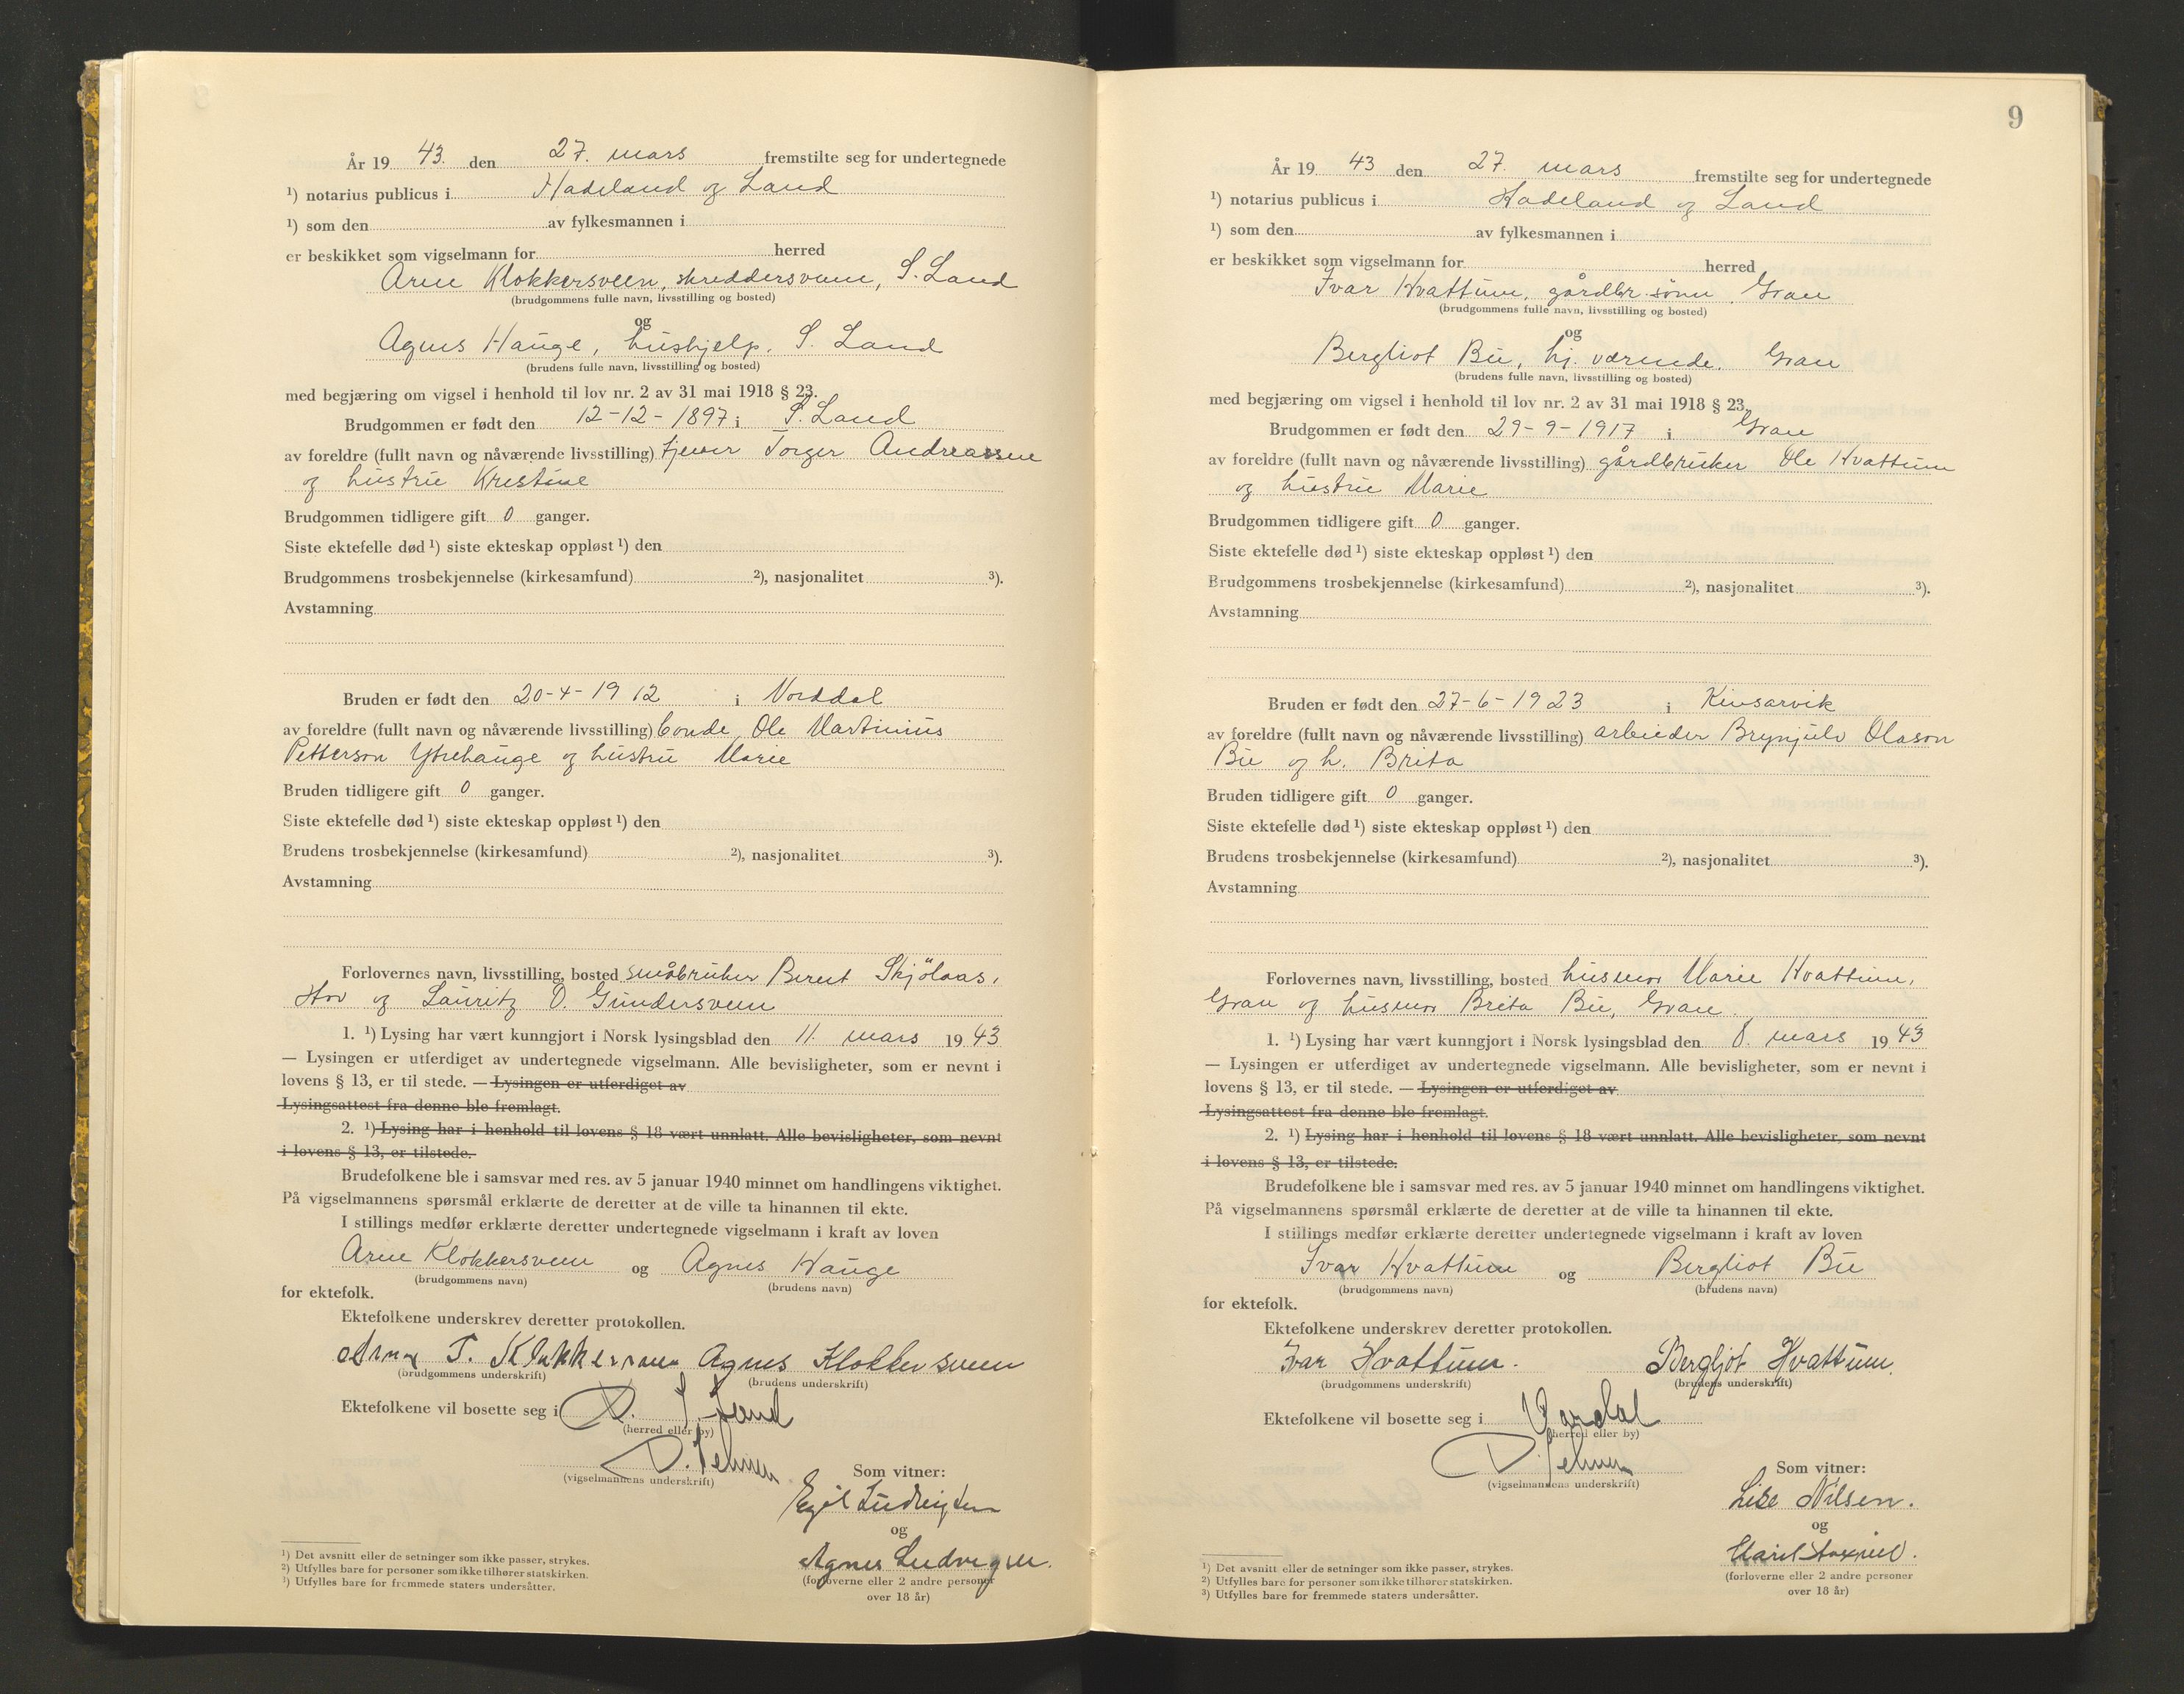 År 19 43. den 27. mars fremstilte seg for undertegnede
¹) notarius publicus i Hadeland og Land
¹) som den av fylkesmannen i
er beskikket som vigselmann for herred
Arne Klokkersveen, skreddersvenn, S. Land
(brudgommens fulle navn, livsstilling og bosted)
og
Agnes Hauge, hushjelp, S. Land
(brudens fulle navn, livsstilling og bosted)
med begjæring om vigsel i henhold til lov nr. 2 av 31 mai 1918 § 23.
Brudgommen er født den 12-12-1897 i S. Land
av foreldre (fullt navn og nåværende livsstilling) tjener Torger Andreassen
og hustru Kristine
Brudgommen tidligere gift 0 ganger.
Siste ektefelle død ¹) siste ekteskap oppløst ¹) den
Brudgommens trosbekjennelse (kirkesamfund) ²), nasjonalitet ³).
Avstamning
Bruden er født den 20-4-1912 i Norddal
av foreldre (fullt navn og nåværende livsstilling) bonde Ole Martinius
Petterson Ytrehauge og hustru Marie
Bruden tidligere gift 0 ganger.
Siste ektefelle død ¹) siste ekteskap oppløst ¹) den
Brudens trosbekjennelse (kirkesamfund) ²), nasjonalitet ³).
Avstamning
Forlovernes navn, livsstilling, bosted småbruker Bernt Skjölaas,
Hov og Lauritz O. Gundersveen
1. ¹) Lysing har vært kunngjort i Norsk lysingsblad den 11. mars 19 43
— Lysingen er utferdiget av undertegnede vigselmann. Alle bevisligheter, som er nevnt i
lovens § 13, er til stede. — Lysingen er utferdiget av
Lysingsattest fra denne ble fremlagt.
2. ¹) Lysing har i henhold til lovens § 18 vært unnlatt. Alle bevisligheter, som nevnt
i lovens § 13, er tilstede.
Brudefolkene ble i samsvar med res. av 5 januar 1940 minnet om handlingens viktighet.
På vigselmannens spørsmål erklærte de deretter at de ville ta hinannen til ekte.
I stillings medfør erklærte deretter undertegnede vigselmann i kraft av loven
Arne Klokkersveen og Agnes Hauge
(brudgommens navn) (brudens navn)
for ektefolk.
Ektefolkene underskrev deretter protokollen.
Arne T. Klokkersveen Agnes Klokkersveen
(brudgommens underskrift) (brudens underskrift)
Ektefolkene vil bosette seg i S. Land
(herred eller by)
(vigselmannens underskrift)
Som vitner:
Egil Ludvigsen
og
Agnes Ludvigsen.
(forloverne eller 2 andre personer
over 18 år)
¹) Det avsnitt eller de setninger som ikke passer, strykes.
²) Utfylles bare for personer som ikke tilhører statskirken.
³) Utfylles bare for fremmede staters undersåtter.
9
År 19 43 den 27. mars fremstilte seg for undertegnede
¹) notarius publicus i Hadeland og Land
¹) som den av fylkesmannen i
er beskikket som vigselmann for herred
Ivar Hvattum, gårdbr. sønn, Gran
(brudgommens fulle navn, livsstilling og bosted)
og
Bergliot Bu, hj. værende. Gran
(brudens fulle navn, livsstilling og bosted)
med begjæring om vigsel i henhold til lov nr. 2 av 31 mai 1918 § 23.
Brudgommen er født den 29-9-1917 i Gran
av foreldre (fullt navn og nåværende livsstilling) gårdbruker Ole Hvattum
og hustru Marie
Brudgommen tidligere gift 0 ganger.
Siste ektefelle død ¹) siste ekteskap oppløst ¹) den
Brudgommens trosbekjennelse (kirkesamfund) ²), nasjonalitet ³).
Avstamning
Bruden er født den 27-6-1923 i Kinsarvik
av foreldre (fullt navn og nåværende livsstilling) arbeider Brynjulv Olason
Bu og h. Brita
Bruden tidligere gift 0 ganger.
Siste ektefelle død ¹) siste ekteskap oppløst ¹) den
Brudens trosbekjennelse (kirkesamfund) ²), nasjonalitet ³).
Avstamning
Forlovernes navn, livsstilling, bosted husmor Marie Hvattum,
Gran og husmor Brita Bu, Gran.
1. ¹) Lysing har vært kunngjort i Norsk lysingsblad den 8. mars 19 43
— Lysingen er utferdiget av undertegnede vigselmann. Alle bevisligheter, som er nevnt i
lovens § 13, er til stede. — Lysingen er utferdiget av
Lysingsattest fra denne ble fremlagt.
2. ¹) Lysing har i henhold til lovens § 18 vært unnlatt. Alle bevisligheter, som nevnt
i lovens § 13, er tilstede.
Brudefolkene ble i samsvar med res. av 5 januar 1940 minnet om handlingens viktighet.
På vigselmannens spørsmål erklærte de deretter at de ville ta hinannen til ekte.
I stillings medfør erklærte deretter undertegnede vigselmann i kraft av loven
Ivar Hvattum og Bergliot Bu
(brudgommens navn) (brudens navn)
for ektefolk.
Ektefolkene underskrev deretter protokollen.
Ivar Hvattum. Bergljot Hvattum.
(brudgommens underskrift) (brudens underskrift)
Ektefolkene vil bosette seg i Vardal
(herred eller by)
(vigselmannens underskrift)
Som vitner:
Lise Nilsen.
og
Marit
(forloverne eller 2 andre personer
over 18 år)
¹) Det avsnitt eller de setninger som ikke passer, strykes.
²) Utfylles bare for personer som ikke tilhører statskirken.
³) Utfylles bare for fremmede staters undersåtter.